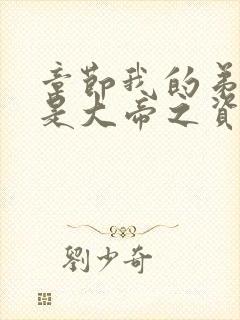 章節我的弟
是大帝之資
劉少奇